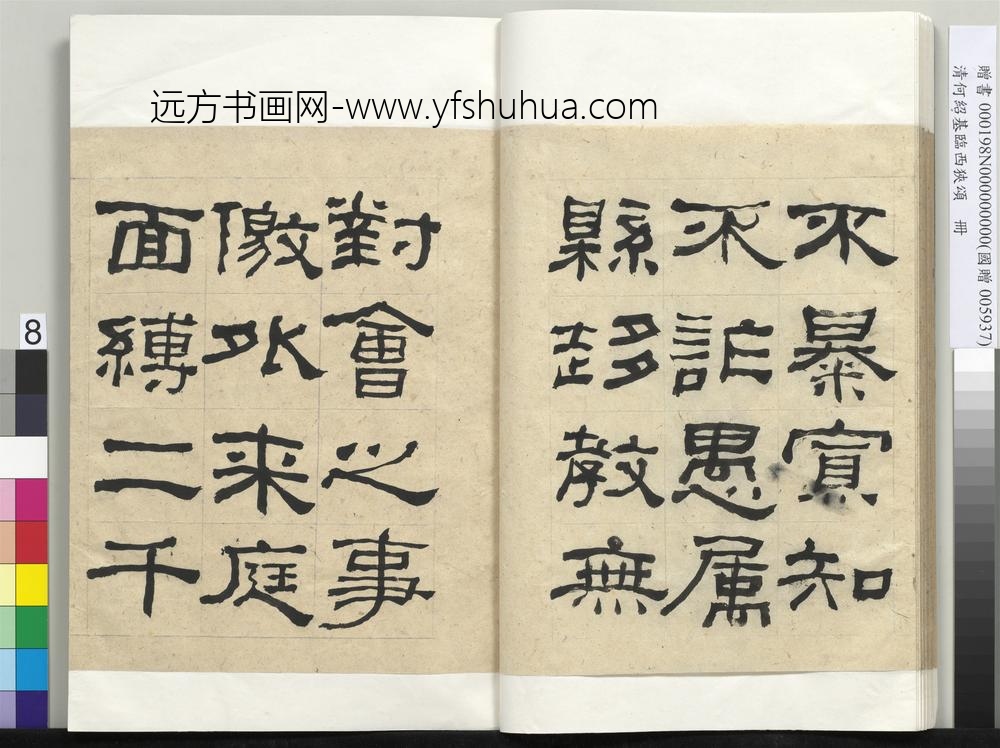 远方书画网-www.yfshuhua.com
贈書 000198N000000000(國贈 005937)
清何紹基臨西狹頌 冊
不暴寡知
不詐愚属
縣趍教無
對會之事
儌外来庭
面縛二千
8